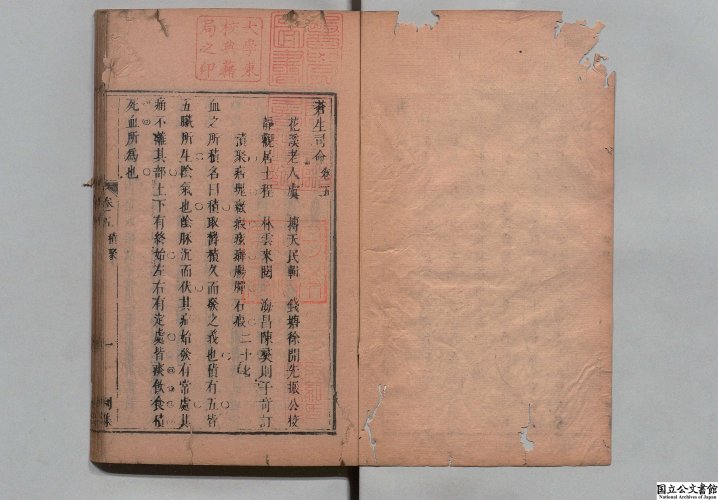 蒼生司命卷五
花溪老人虞 摶天民輯 錢塘徐開先振公校
靜觀居士程 林雲來閱 海昌陳奭則于奇訂
積聚痞塊癥瘕痃癖腸覃石瘕二十七
血之所積名曰積取舊積久而聚之義也積有五皆
五臟所生陰氣也陰脉沉而伏其病始發有常處其
痛不離其部上下有終始左右有定處皆痰飲食積
死血所爲也
卷之五 積聚
一
大學東校典藉局之印
国立公文書館
National Archives of Japan